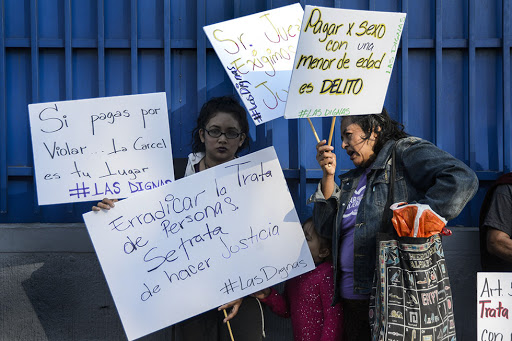 Si pagas por
Violar... La Carcel
es tu lugar
#LAS DIGNAS
Sr.
Exigimos
Ju
#LASDIG
Pagar x SEXO
con una
menor de edad
es DELITO
#LAS DIGNAS
Erradicar la Trata
de Personas
Se trata
de hacer Justicia
#LasDignas
Art
Trata
con